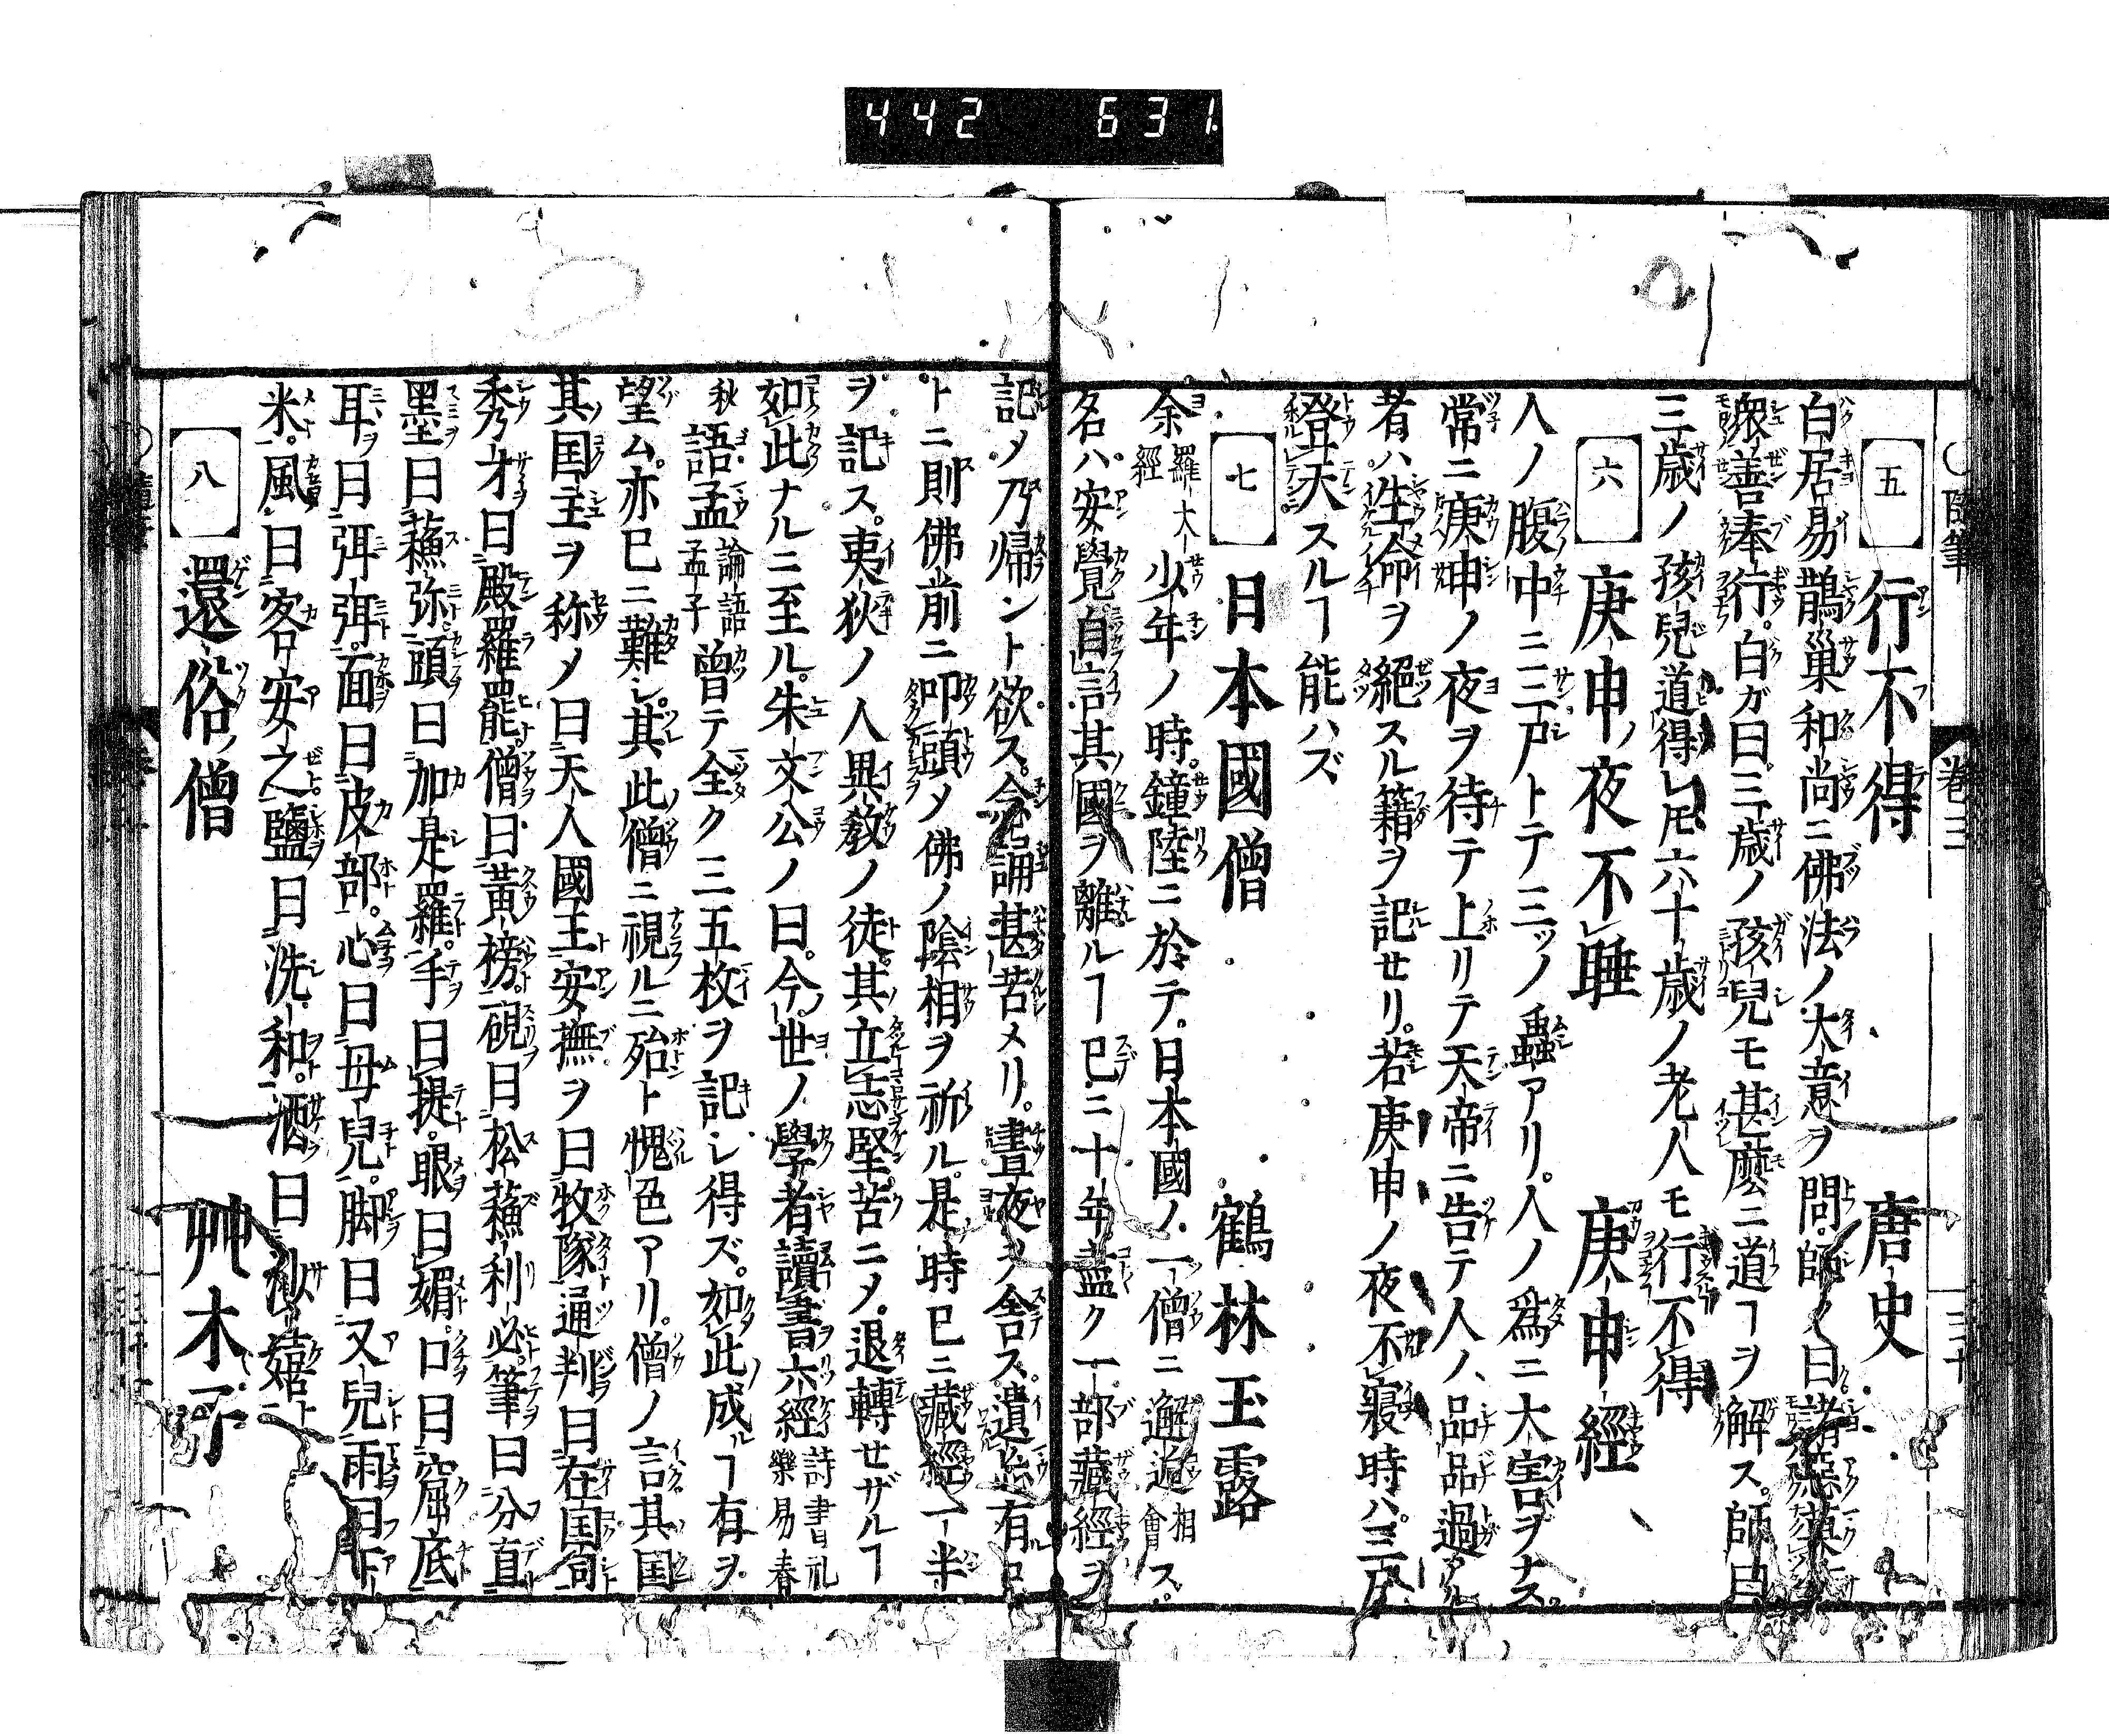 442 631
隨筆 卷三 三十
五 行不得 唐史
白居易鵲巢和尚ニ佛法ノ大意ヲ問。師ノ曰諸惡莫作
衆善奉行。白ガ曰。三歳ノ孩兒モ甚麼ニ道ヿヲ解ス。師曰
三歳ノ孩兒道得レ𪜈六十歳ノ老人モ行不得
六 庚申ノ夜不睡 庚申經
人ノ腹中ニ三尸トテ三ツノ蟲アリ。人ノ爲ニ大害ヲナス。
常ニ庚申ノ夜ヲ待テ上リテ天帝ニ告テ人ノ品品過アル
者ハ生命ヲ絕スル籍ヲ記セリ。若庚申ノ夜不寢時ハ。三尸
登天スルヿ能ハズ
七 日本國僧 鶴林玉露
余 羅大經 少年ノ時。鐘陸ニ於テ。日本國ノ一僧ニ邂逅 相會 ス。
名ハ安覺自言其國ヲ離ルヿ已ニ十年盡ク一部藏經ヲ
記メ乃帰ント欲ス。念誦甚苦メリ。晝夜ヲ舍ス。遺忘有ᄆ
トニ則佛前ニ叩頭メ佛ノ陰相ヲ祈ル。是時已ニ藏經一半
ヲ記ス。夷狄ノ人異教ノ徒。其立志堅苦ニメ。退轉セザルヿ
如此ナルニ至ル。朱文公ノ曰。今世ノ學者讀書六經 詩書礼樂易春
秋 語孟 論語孟子 曾テ全ク三五枚ヲ記シ得ズ。如此成ルヿ有ヲ
望ム。亦已ニ難シ。其此僧ニ視ルニ殆ト愧色アリ。僧ノ言其国
其国主ヲ称メ曰天人國王安撫ヲ曰牧隊通判曰在国司
秀才曰殿羅罷僧曰黄榜。硯曰松蘓利必筆曰分直
墨曰蘓弥頭曰加是羅。手曰提。眼曰媚。口曰窟底
耳曰弭弭。面曰皮部。心曰母兒。脚曰又兒雨曰下
米。風曰客安之鹽曰洗和。酒曰沙嬉
八 還俗ノ僧 艸木子